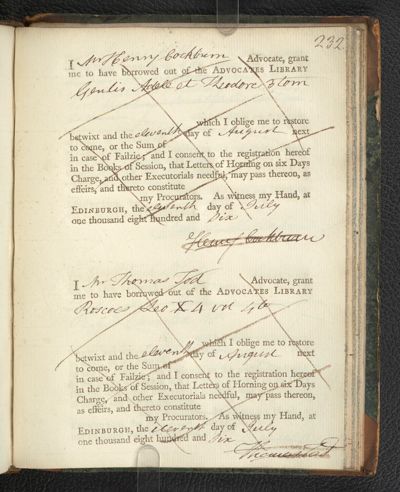 232
I Mr Henry Cockburn Advocate, grant
me to have borrowed out of the ADVOCATES LIBRARY
Genlis Adele et Theodore 3 tom
which I oblige me to restore
betwixt and the eleventh day of August next
to come, or the Sum of
in case of Failzie; and I consent to the registration hereof
in the Books of Session, that Letters of Horning on six Days
Charge, and other Executorials needful, may pass thereon, as
effeirs, and thereto constitute
my Procurators. As witness my Hand, at
EDINBURGH, the eleventh day of July
one thousand eight hundred and Six
Henry Cockburn
I Mr Thomas Tod Advocate, grant
me to have borrowed out of the ADVOCATES LIBRARY
Roscoes Leo X 4 vol 4to
which I oblige me to restore
betwixt and the eleventh day of August next
to come, or the Sum of
in case of Failzie; and I consent to the registration hereof
in the Books of Session, that Letters of Horning on six Days
Charge, and other Executorials needful, may pass thereon,
as effeirs, and thereto constitute
my Procurators. As witness my Hand, at
EDINBURGH, the eleventh day of July
one thousand eight hundred and Six
Thomas Tod